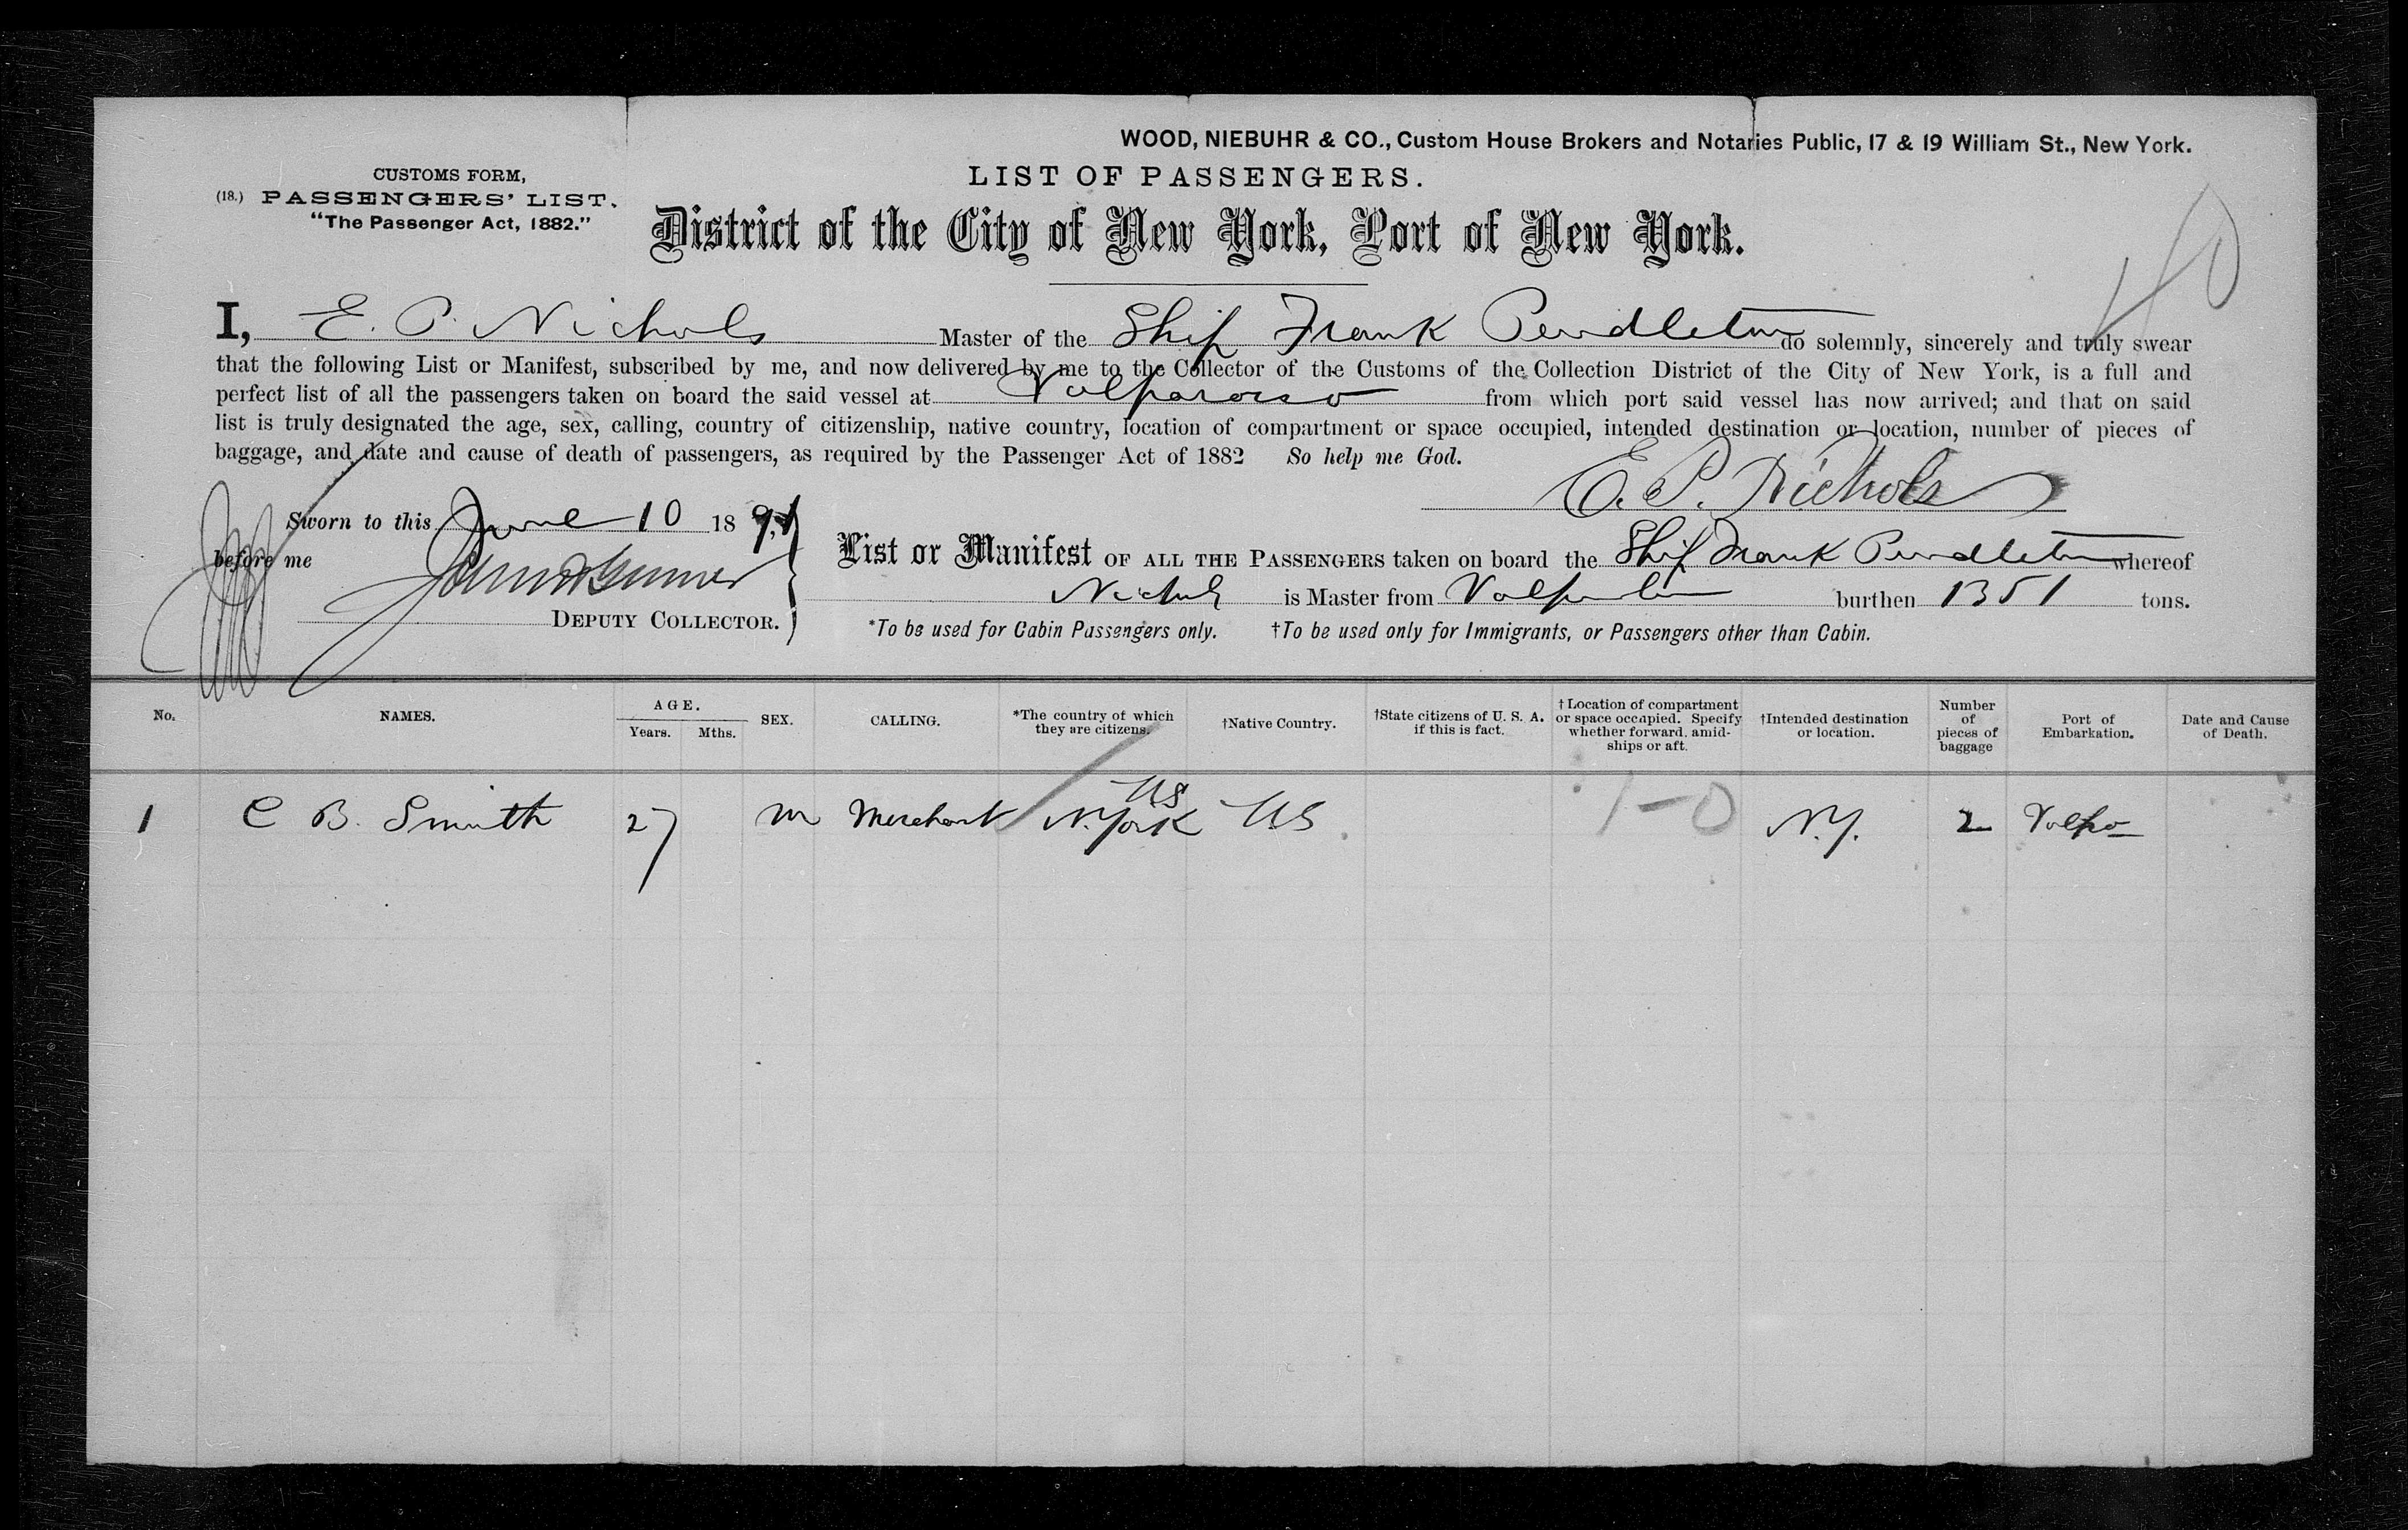 WOOD, NIEBUHR & CO., Custom House Brokers and Notaries Public, 17 & 19 William St., New York.
CUSTOMS FORM,
LIST OF PASSENGERS.
(18.) PASSENGERS' LIST.
"The Passenger Act, 1882."
District of the City of New York, Port of New York.
I, E. P. Nichols Master of the Ship Frank Pendleton do solemnly, sincerely and truly swear
that the following List or Manifest, subscribed by me, and now delivered by me to the Collector of the Customs of the Collection District of the City of New York, is a full and
perfect list of all the passengers taken on board the said vessel at Valparaiso from which port said vessel has now arrived; and that on said
list is truly designated the age, sex, calling, country of citizenship, native country, location of compartment or space occupied, intended destination or location, number of pieces of
baggage, and date and cause of death of passengers, as required by the Passenger Act of 1882 So help me God.
E. P. Nichols
Sworn to this June 10 189
before me
DEPUTY COLLECTOR.
List or Manifest OF ALL THE PASSENGERS taken on board the Ship Frank Pendleton whereof
Nichols is Master from burthen 1351 tons.
*To be used for Cabin Passengers only. †To be used only for Immigrants, or Passengers other than Cabin.
No. NAMES. AGE. Years. Mths. SEX. CALLING. *The country of which they are citizens. †Native Country. †State citizens of U. S. A. if this is fact. †Location of compartment or space occupied. Specify whether forward, amidships or aft. †Intended destination or location. Number of pieces of baggage Port of Embarkation. Date and Cause of Death.
US
1 C B. Smith 27 m Merchant N. York US 1-0 N.Y. 2 Valpo